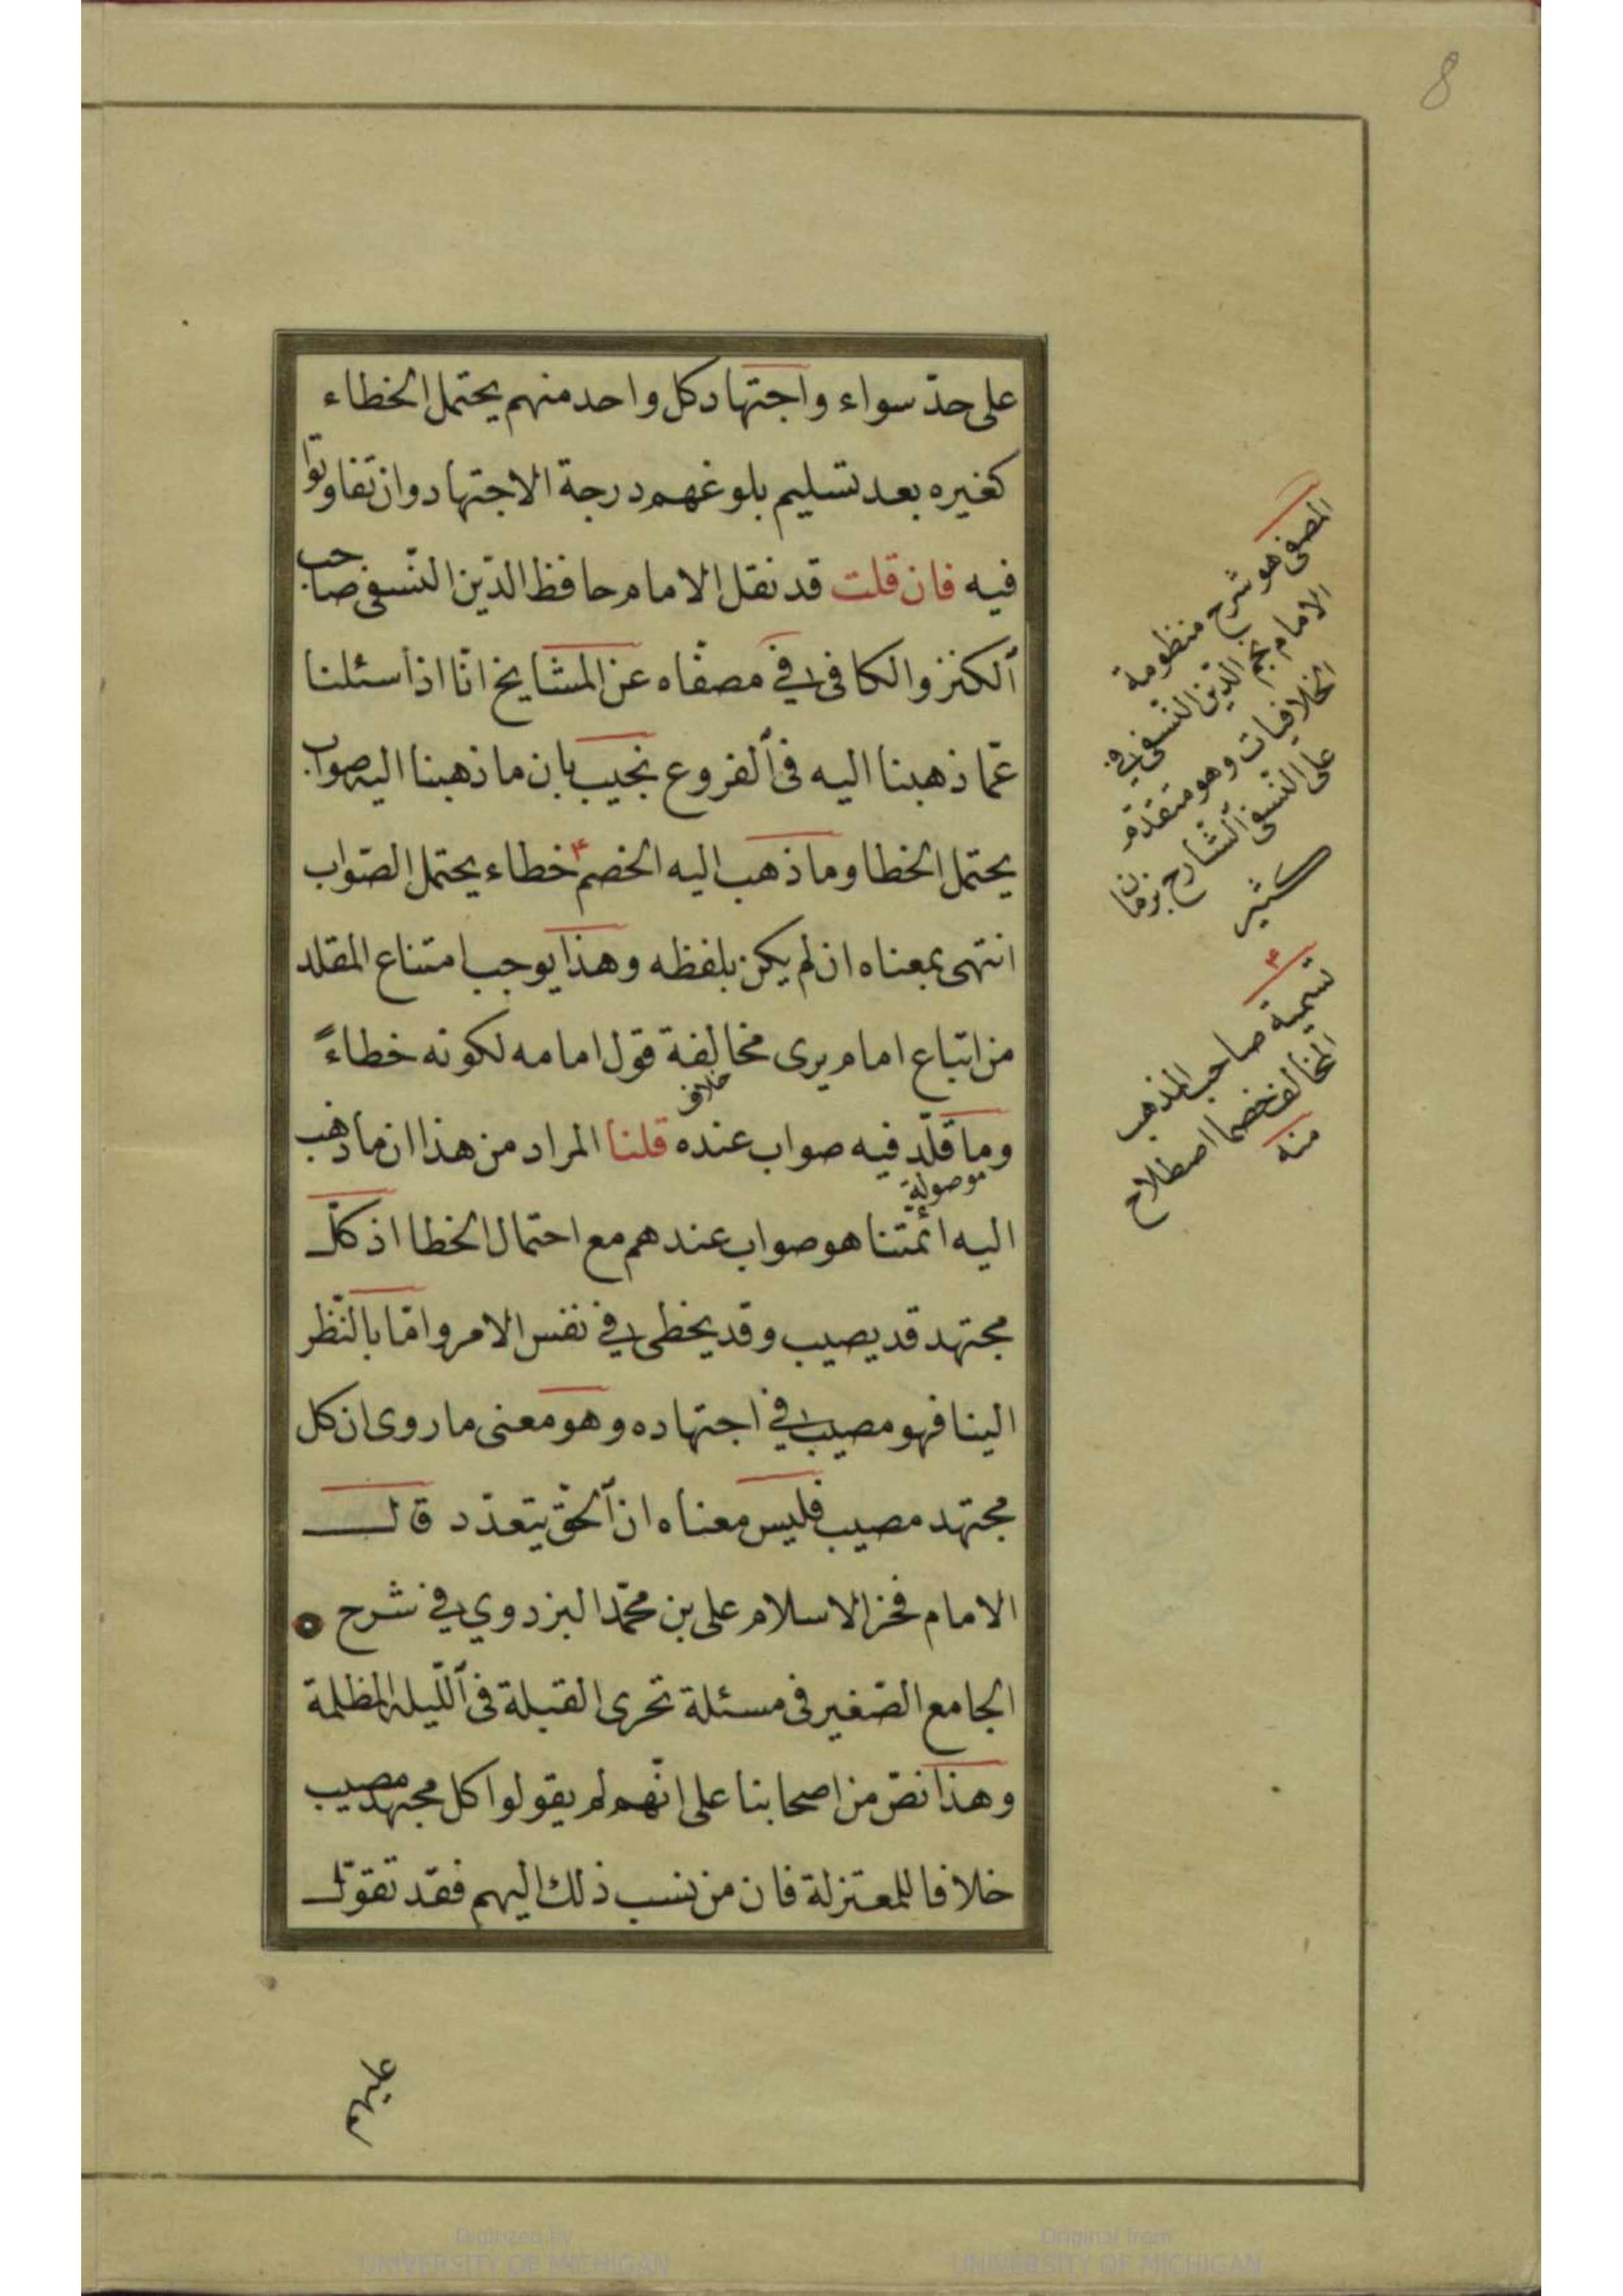 8
على حدّ سواء واجتهاد كل واحد منهم يحتمل الخطاء
كغيره بعد تسليم بلوغهم درجة الاجتهاد وان تفاوتوا
فيه فان قلت قد نقل الامام حافظ الدّين النّسفى صاحب
الكنز والكافى في مصفّاه عن المشايخ انّا اذا سئلنا
عمّا ذهبنا اليه فى الفروع نجيب بان ما ذهبنا اليه صواب
يحتمل الخطا وما ذهب اليه الخصم خطاء يحتمل الصّواب
انتهى بمعناه ان لم يكن بلفظه وهذا يوجب امتناع المقلد
من اتباع امام يرى مخالفة قول امامه لكونه خطاءً
خلاف
وما قلّد فيه صواب عنده قلنا المراد من هذا ان ما ذهب
موصولة
اليه ائمّتنا هو صواب عندهم مع احتمال الخطا اذ كلّ
مجتهد قد يصيب وقد يخطى في نفس الامر وامّا بالنّظر
الينا فهو مصيب في اجتهاده وهو معنى ما روى ان كل
مجتهد مصيب فليس معناه ان الحقّ يتعدّد قال
الامام فخر الاسلام على بن محمّد البزدوي في شرح
الجامع الصّغير فى مسئلة تحرى القبلة فى اللّيلة المظلمة
وهذا نصّ من اصحابنا على انّهم لم يقولوا كل مجتهد مصيب
خلافا للمعتزلة فان من نسب ذلك اليهم فقد تقوّل
المصفى هو شرح منظومة
الامام نجم الدّين النّسفى في
الخلافيات وهو متقدّم
على النّسفى الشّارح بزمان
كثير
٣
تسمية صاحب المذهب
المخالف خصما اصطلاح
منه
عليهم
Digitized by
UNIVERSITY OF MICHIGAN
Original from
UNIVERSITY OF MICHIGAN